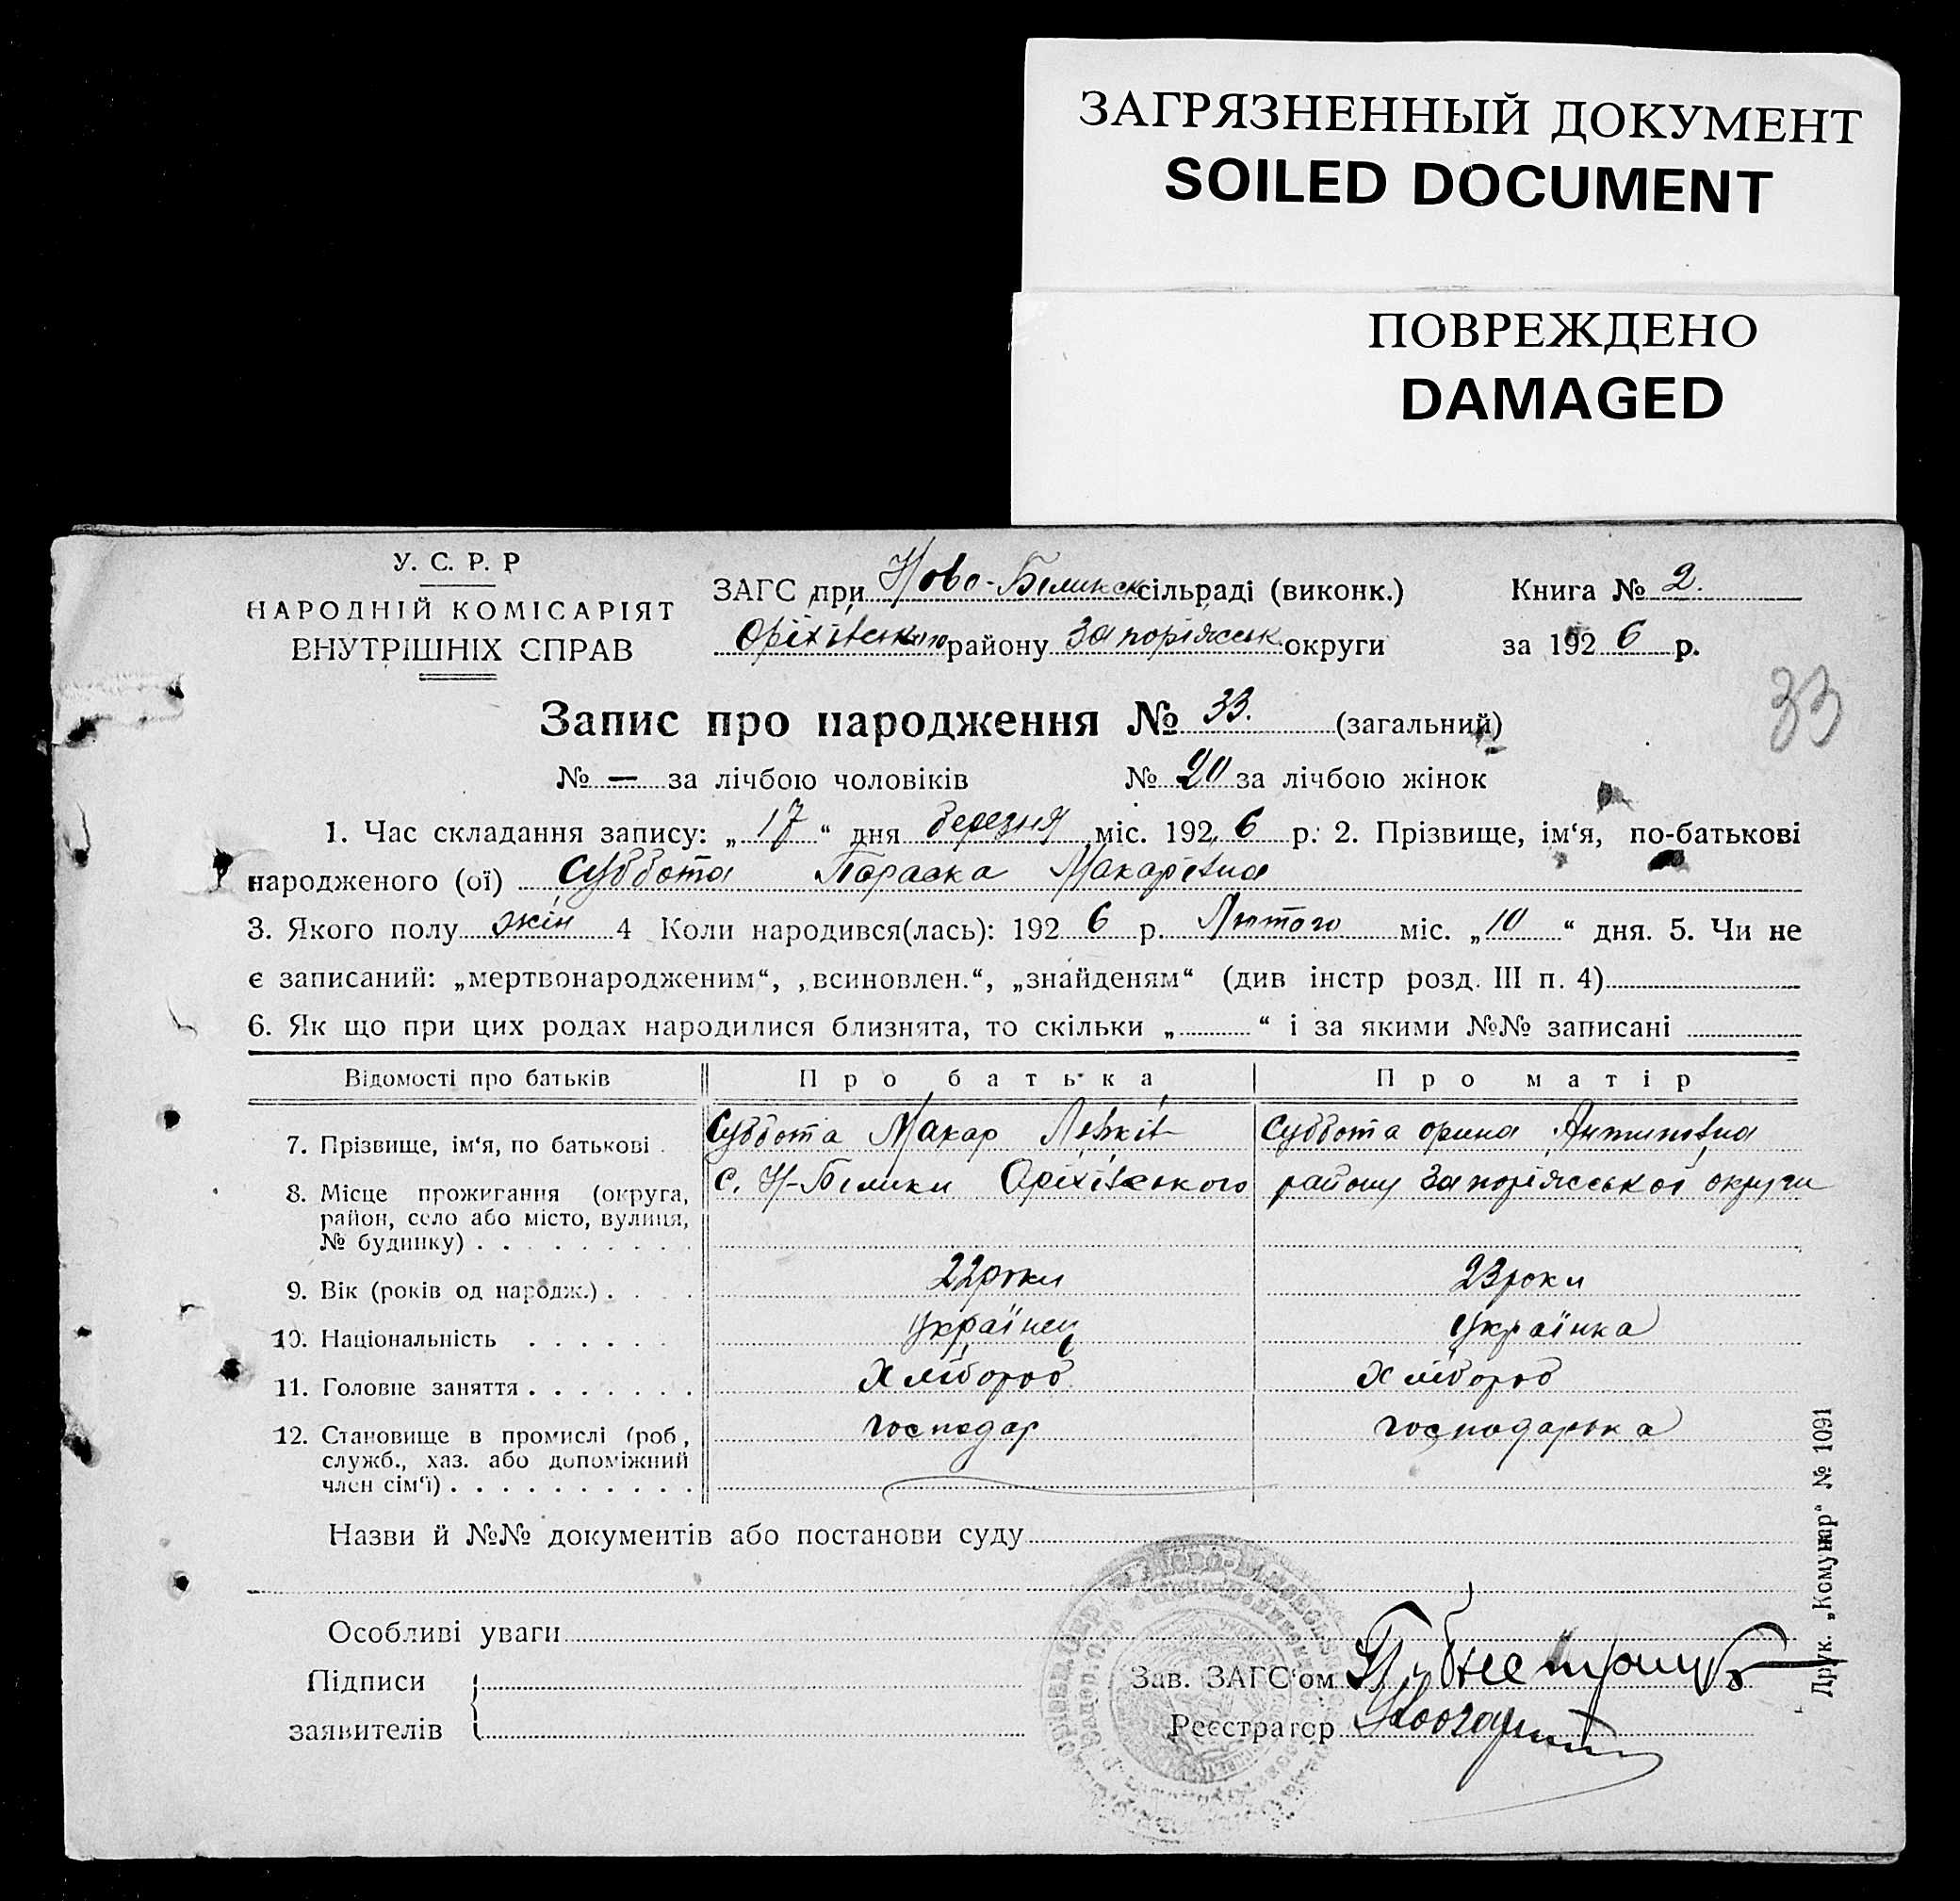 ЗАГРЯЗНЕННЫЙ ДОКУМЕНТ
SOILED DOCUMENT
ПОВРЕЖДЕНО
DAMAGED
У. С. Р. Р
НАРОДНІЙ КОМІСАРІЯТ
ВНУТРІШНІХ СПРАВ
ЗАГС при Ново-Белинск сільраді (виконк.)
Оріхівського району Запоріжськ округи
Книга № 2.
за 1926 р.
33
Запис про народження № 33. (загальний)
№ — за лічбою чоловіків № 20 за лічбою жінок
1. Час складання запису: „17“ дня березня міс. 1926 р. 2. Прізвище, ім‘я, по-батькові
народженого (ої) Суббота Параска Макарівна
3. Якого полу жін 4 Коли народився(лась): 1926 р. Лютого міс. „10“ дня. 5. Чи не
є записаний: „мертвонародженим“, „всиновлен.“, „знайденям“ (див інстр розд. III п. 4)
6. Як що при цих родах народилися близнята, то скільки „ “ і за якими №№ записані
Відомості про батьків Про батька Про матір
7. Прізвище, ім‘я, по батькові Суббота Макар Суббота орина Антипівна
8. Місце прожигання (округа, с. Н-Белики Оріхівського району Запоріжської округи
район, село або місто, вулиця,
№ будинку)
9. Вік (років од народж.) 22 роки 23 роки
10. Національність Українец Українка
11. Головне заняття Хлібороб Хлібороб
12. Становище в промислі (роб, господар господарька
служб., хаз. або допоміжний
член сім‘ї)
Назви й №№ документів або постанови суду
Особливі уваги
Підписи
заявителів
Зав. ЗАГС‘ом
Реєстратор
Друк. „Комунар“ № 1091